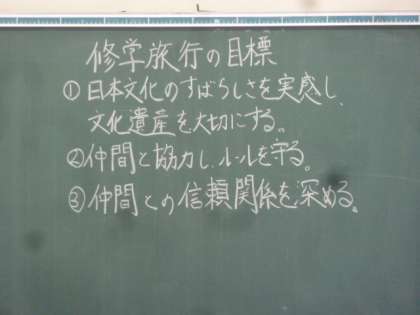 修学旅行の目標
①日本文化のすばらしさを実感し、
文化遺産を大切にする。
②仲間と協力し、ルールを守る。
③仲間との信頼関係を深める。